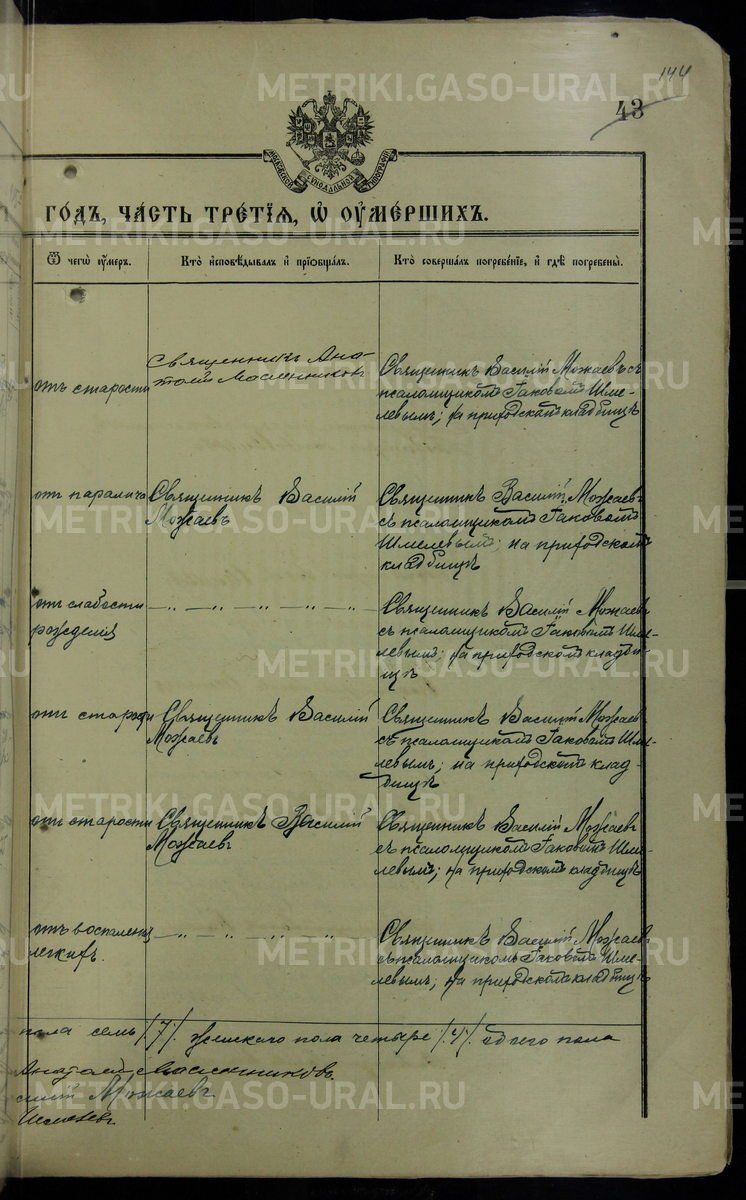 144
43
МОСКОВСКОЙ СУНОДАЛЬНОЙ ТИПОГРАФІИ
ГО́ДЪ, ЧА́СТЬ ТРЕ́ТІѦ, Ѡ҆ ОУ҆МЕ́РШИХЪ.
Ѿ чегѡ̀ оу҆́меръ.
Кто̀ и҆сповѣ́дывалъ и҆ прїѻбща́лъ.
Кто̀ соверша́лъ погребе́нїе, и҆ гдѣ̀ погребены̀.
отъ старости
Священникъ Ана-
толій Масленниковъ
Священникъ Василій Можаевъ съ
псаломщикомъ Іаковомъ Шме-
левымъ; на приходскомъ кладбищѣ
отъ паралича
Священникъ Василій
Можаевъ
Священникъ Василій Можаевъ
съ псаломщикомъ Іаковомъ
Шмелевымъ; на приходскомъ
кладбищѣ
отъ слабости
рожденія
— „ — „ — „ — „ —
Священникъ Василій Можаевъ
съ псаломщикомъ Іаковомъ Шме-
левымъ; на приходскомъ кладби-
щѣ
отъ старости
Священникъ Василій
Можаевъ
Священникъ Василій Можаевъ
съ псаломщикомъ Іаковомъ Шме-
левымъ; на приходскомъ клад-
бищѣ
отъ старости
Священникъ Василій
Можаевъ
Священникъ Василій Можаевъ
съ псаломщикомъ Іаковомъ Шме-
левымъ; на приходскомъ кладбищѣ
отъ воспаленія
легкихъ.
— „ — „ — „ — „ —
Священникъ Василій Можаевъ
съ псаломщикомъ Іаковомъ Шме-
левымъ; на приходскомъ кладбищѣ
пола семь /7/. женскаго пола четыре /4/. обоего пола
Анатолій Масленниковъ.
силій Можаевъ
Шмелевъ
METRIKI.GASO-URAL.RU